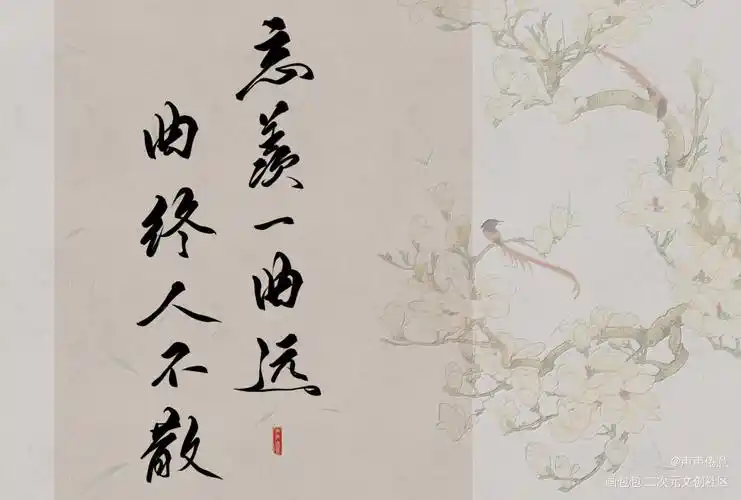 忘羡一曲远
曲终人不散
画包包 二次元文创社区